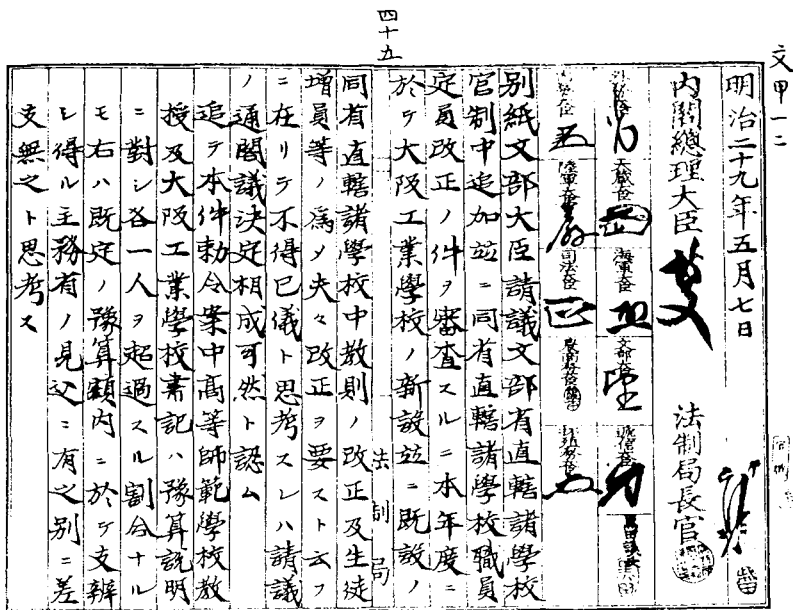 文甲一二
四十五
明治二十九年五月七日
内閣總理大臣
法制局長官
外務大臣
大蔵大臣
海軍大臣
文部大臣
遞信大臣
内務大臣
陸軍大臣
司法大臣
農商務大臣
拓殖務大臣
別紙文部大臣請議文部省直轄諸學校
官制中追加並ニ同省直轄諸學校職員
定員改正ノ件ヲ審査スルニ本年度ニ
於テ大阪工業學校ノ新設並ニ既設ノ
法制局
同省直轄諸學校中教則ノ改正及生徒
増員等ノ爲メ夫々改正ヲ要スト云フ
ニ在リテ不得已儀ト思考スレハ請議
ノ通閣議決定相成可然ト認ム
追テ本件勅令案中高等師範學校教
授及大阪工業學校書記ハ豫算説明
ニ對シ各一人ヲ超過スル割合ナル
モ右ハ既定ノ豫算額内ニ於テ支辨
シ得ル主務省ノ見込ニ有之別ニ差
支無之ト思考ス